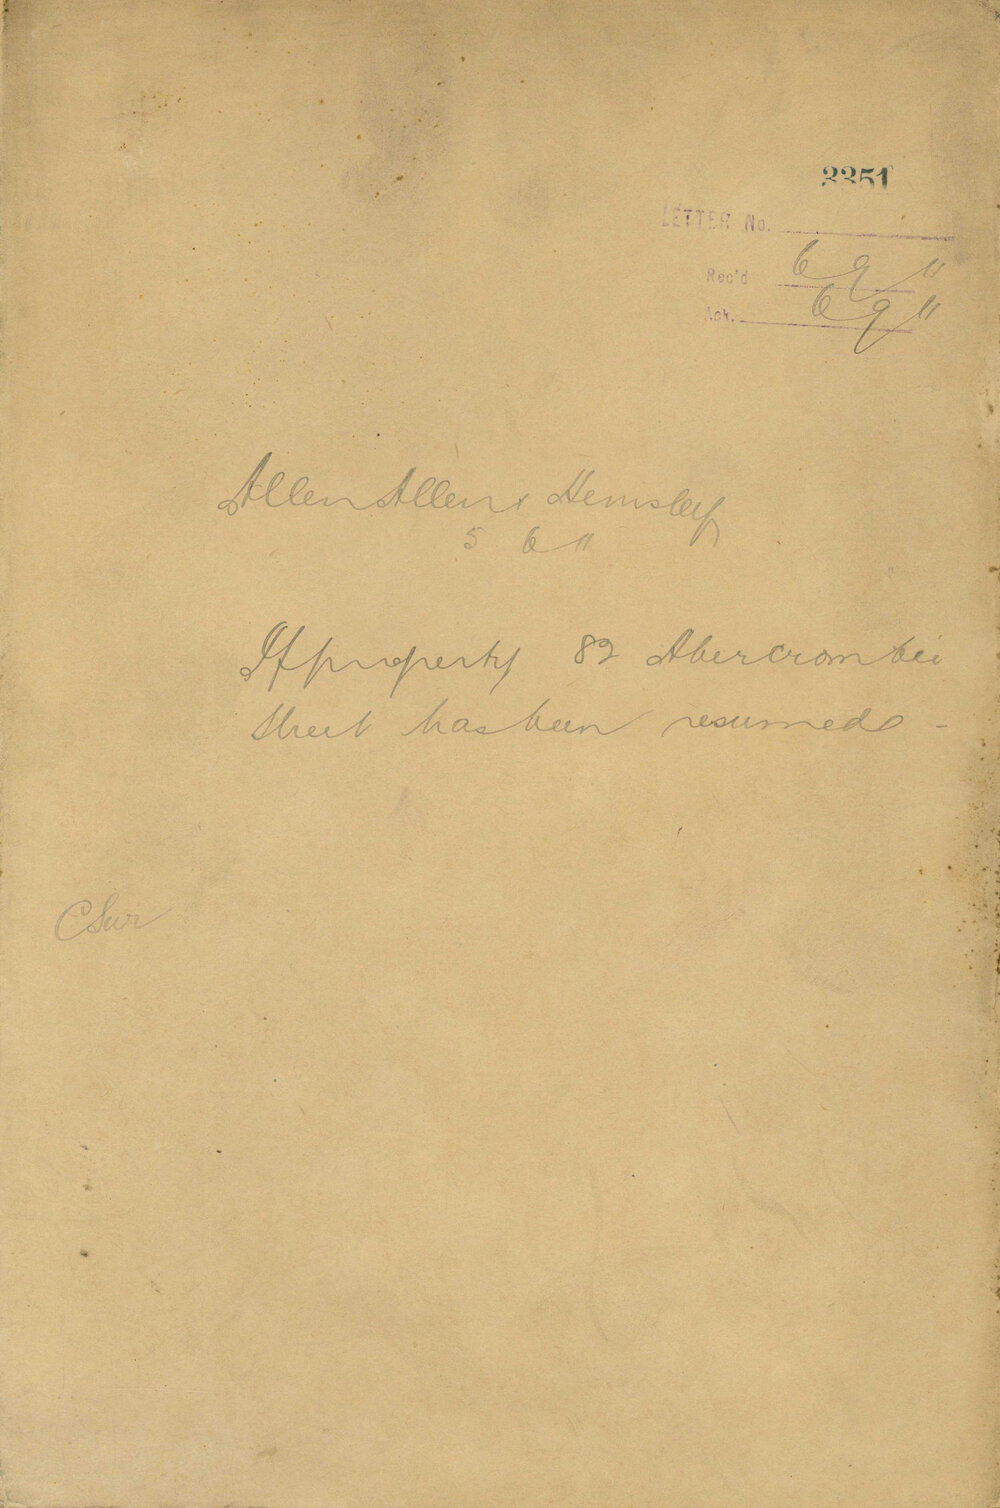 3351
LETTER No.
Rec'd 6 9 11
Ack. 6 9 11
Allen Allen & Hemsley
5 6 11
If property 82 Abercrombie
Street has been resumed -
CSur